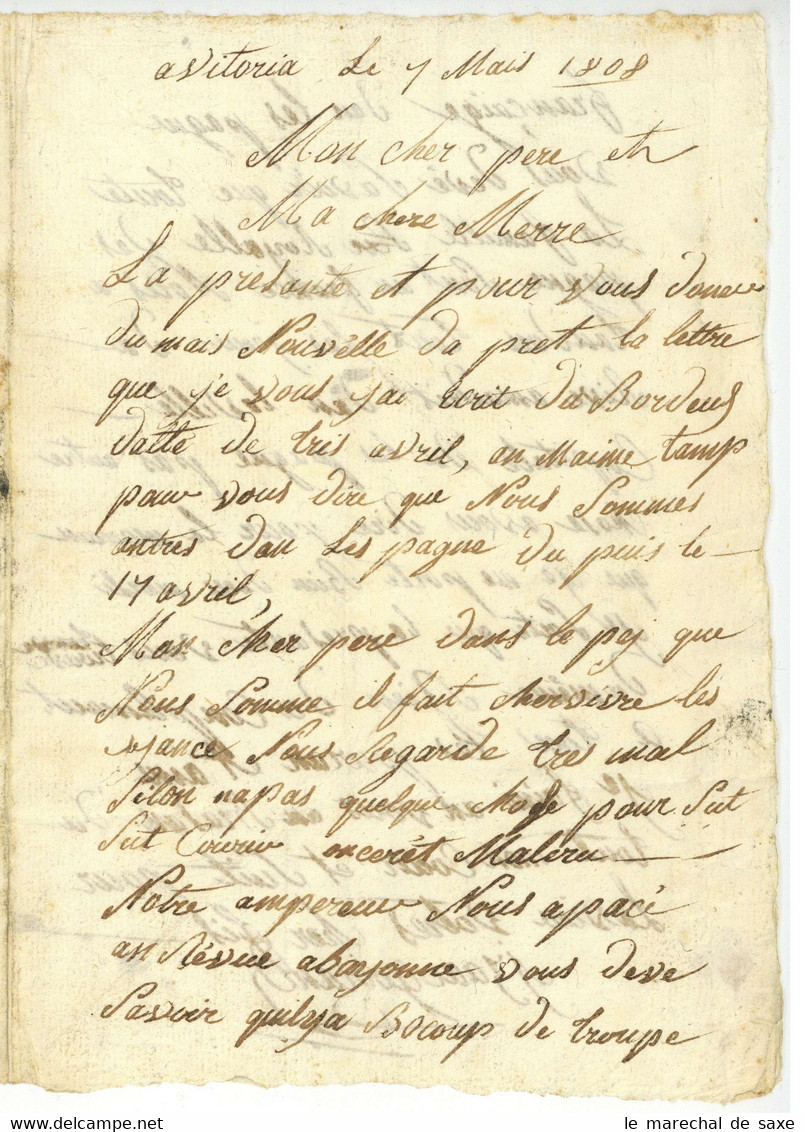 avitoria Le 7 Mais 1808
Mon cher pere et
Ma chere Merre
La presante et pour vous doner
du mais Nouvelle da pret la lettre
que je vous jai Ecrit du Bordeus
datte de tres avril, an Maime tamp
pour vous dire que Nous Sommes
antres dan Les pagne du puis le
17 avril,
Mon Cher pere dans le pej que
Nous Somme il fait cher vivre les
Nous Regarde tres mal
Silon napas quelque chose pour Sut
Sut ancoret Maleru
Notre ampereur Nous apacé
an Révue abayonne vous deve
Savoir quilya Bocoup de troupe
le marechal de saxe